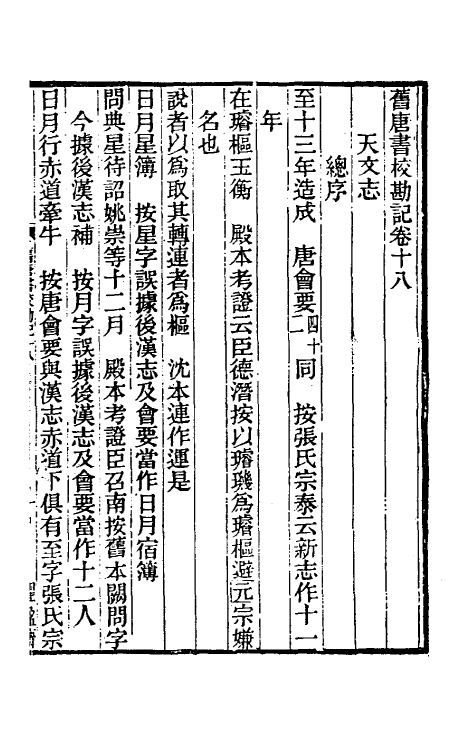 舊唐書校勘記卷十八
天文志
總序
至十三年造成　唐會要四十二同　按張氏宗泰云新志作十一
年
在璿樞玉衡　殿本考證云臣德潛按以璿璣爲璿樞避元宗嫌
名也
說者以爲取其轉連者爲樞　沈本連作運是
日月星簿　按星字誤據後漢志及會要當作日月宿簿
問典星待詔姚崇等十二月　殿本考證臣召南按舊本闕問字
今據後漢志補　按月字誤據後漢志及會要當作十二人
日月行赤道牽牛　按唐會要與漢志赤道下俱有至字張氏宗